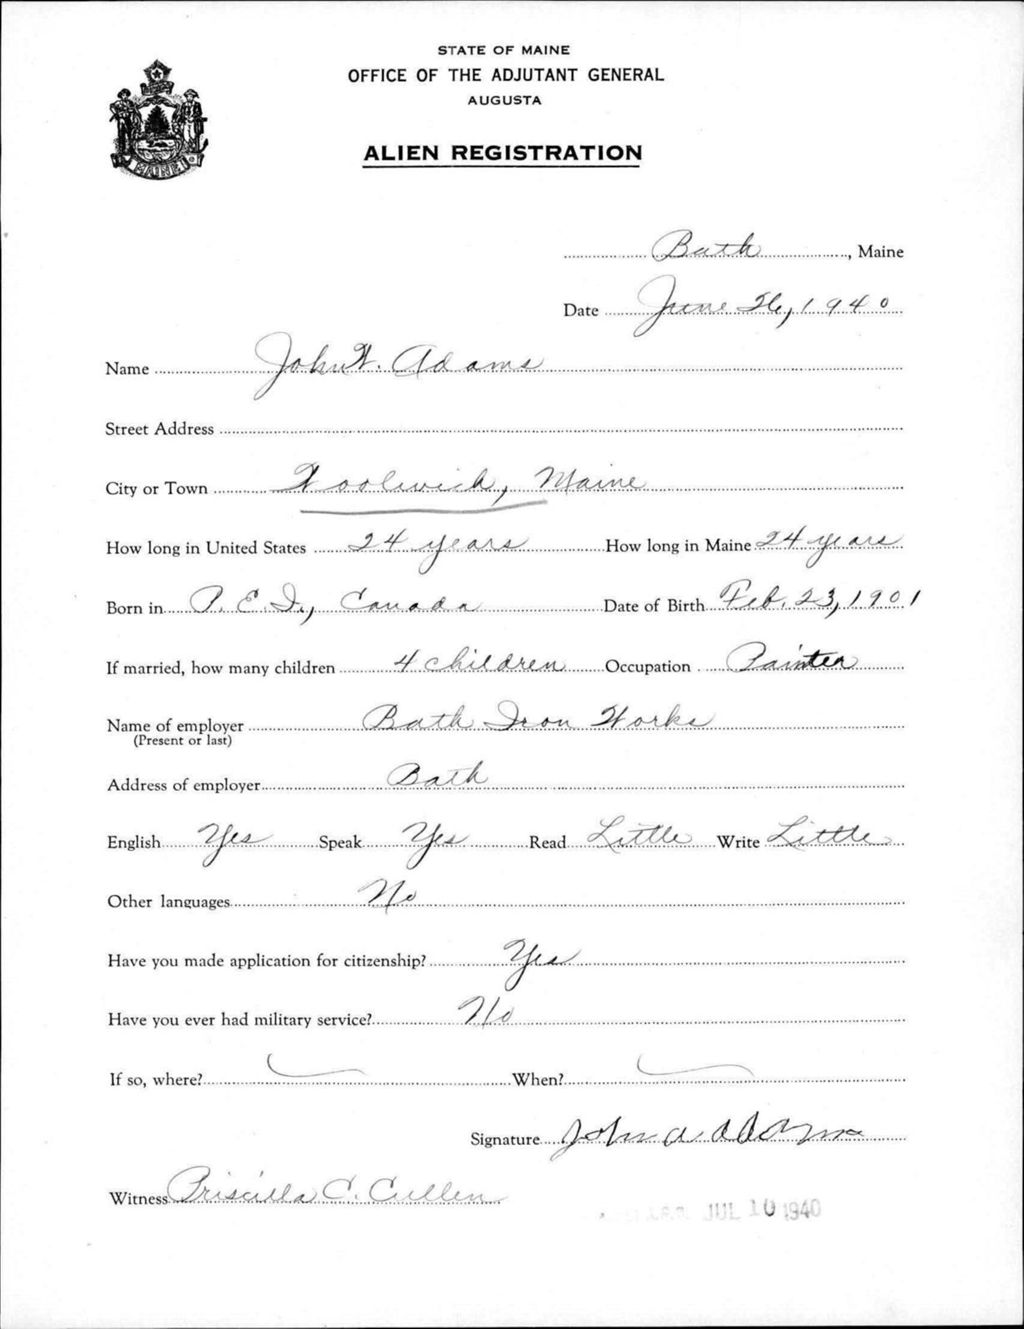 STATE OF MAINE
OFFICE OF THE ADJUTANT GENERAL
AUGUSTA
ALIEN REGISTRATION
MAINE
Bath, Maine
Date June 26, 1940
Name John W. Adams
Street Address
City or Town Woolwich, Maine
How long in United States 24 years How long in Maine 24 years
Born in P.E.I., Canada Date of Birth Feb. 23, 1901
If married, how many children 4 children Occupation Painter
Name of employer Bath Iron Works
(Present or last)
Address of employer Bath
English Yes Speak Yes Read Little Write Little
Other languages No
Have you made application for citizenship? Yes
Have you ever had military service? No
If so, where? When?
Signature John Adams
Witness Priscilla C. Cullen
JUL 10 1940